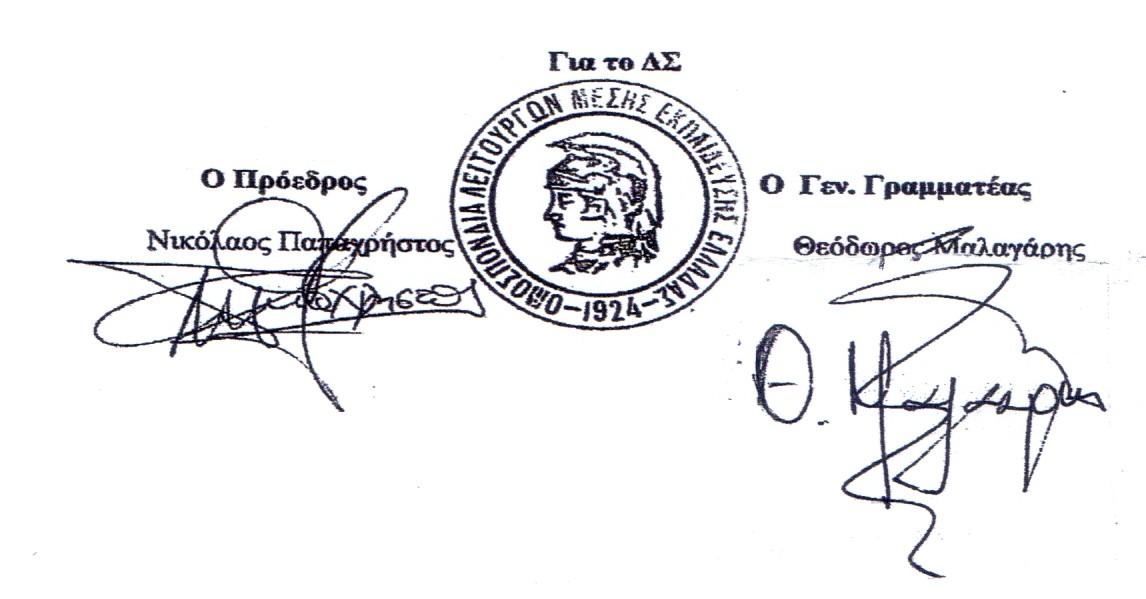 Για το ΔΣ
ΟΜΟΣΠΟΝΔΙΑ ΛΕΙΤΟΥΡΓΩΝ ΜΕΣΗΣ ΕΚΠΑΙΔΕΥΣΗΣ ΕΛΛΑΔΑΣ
-1924-
Ο Πρόεδρος
Νικόλαος Παπαχρήστος
Ο Γεν. Γραμματέας
Θεόδωρος Μαλαγάρης